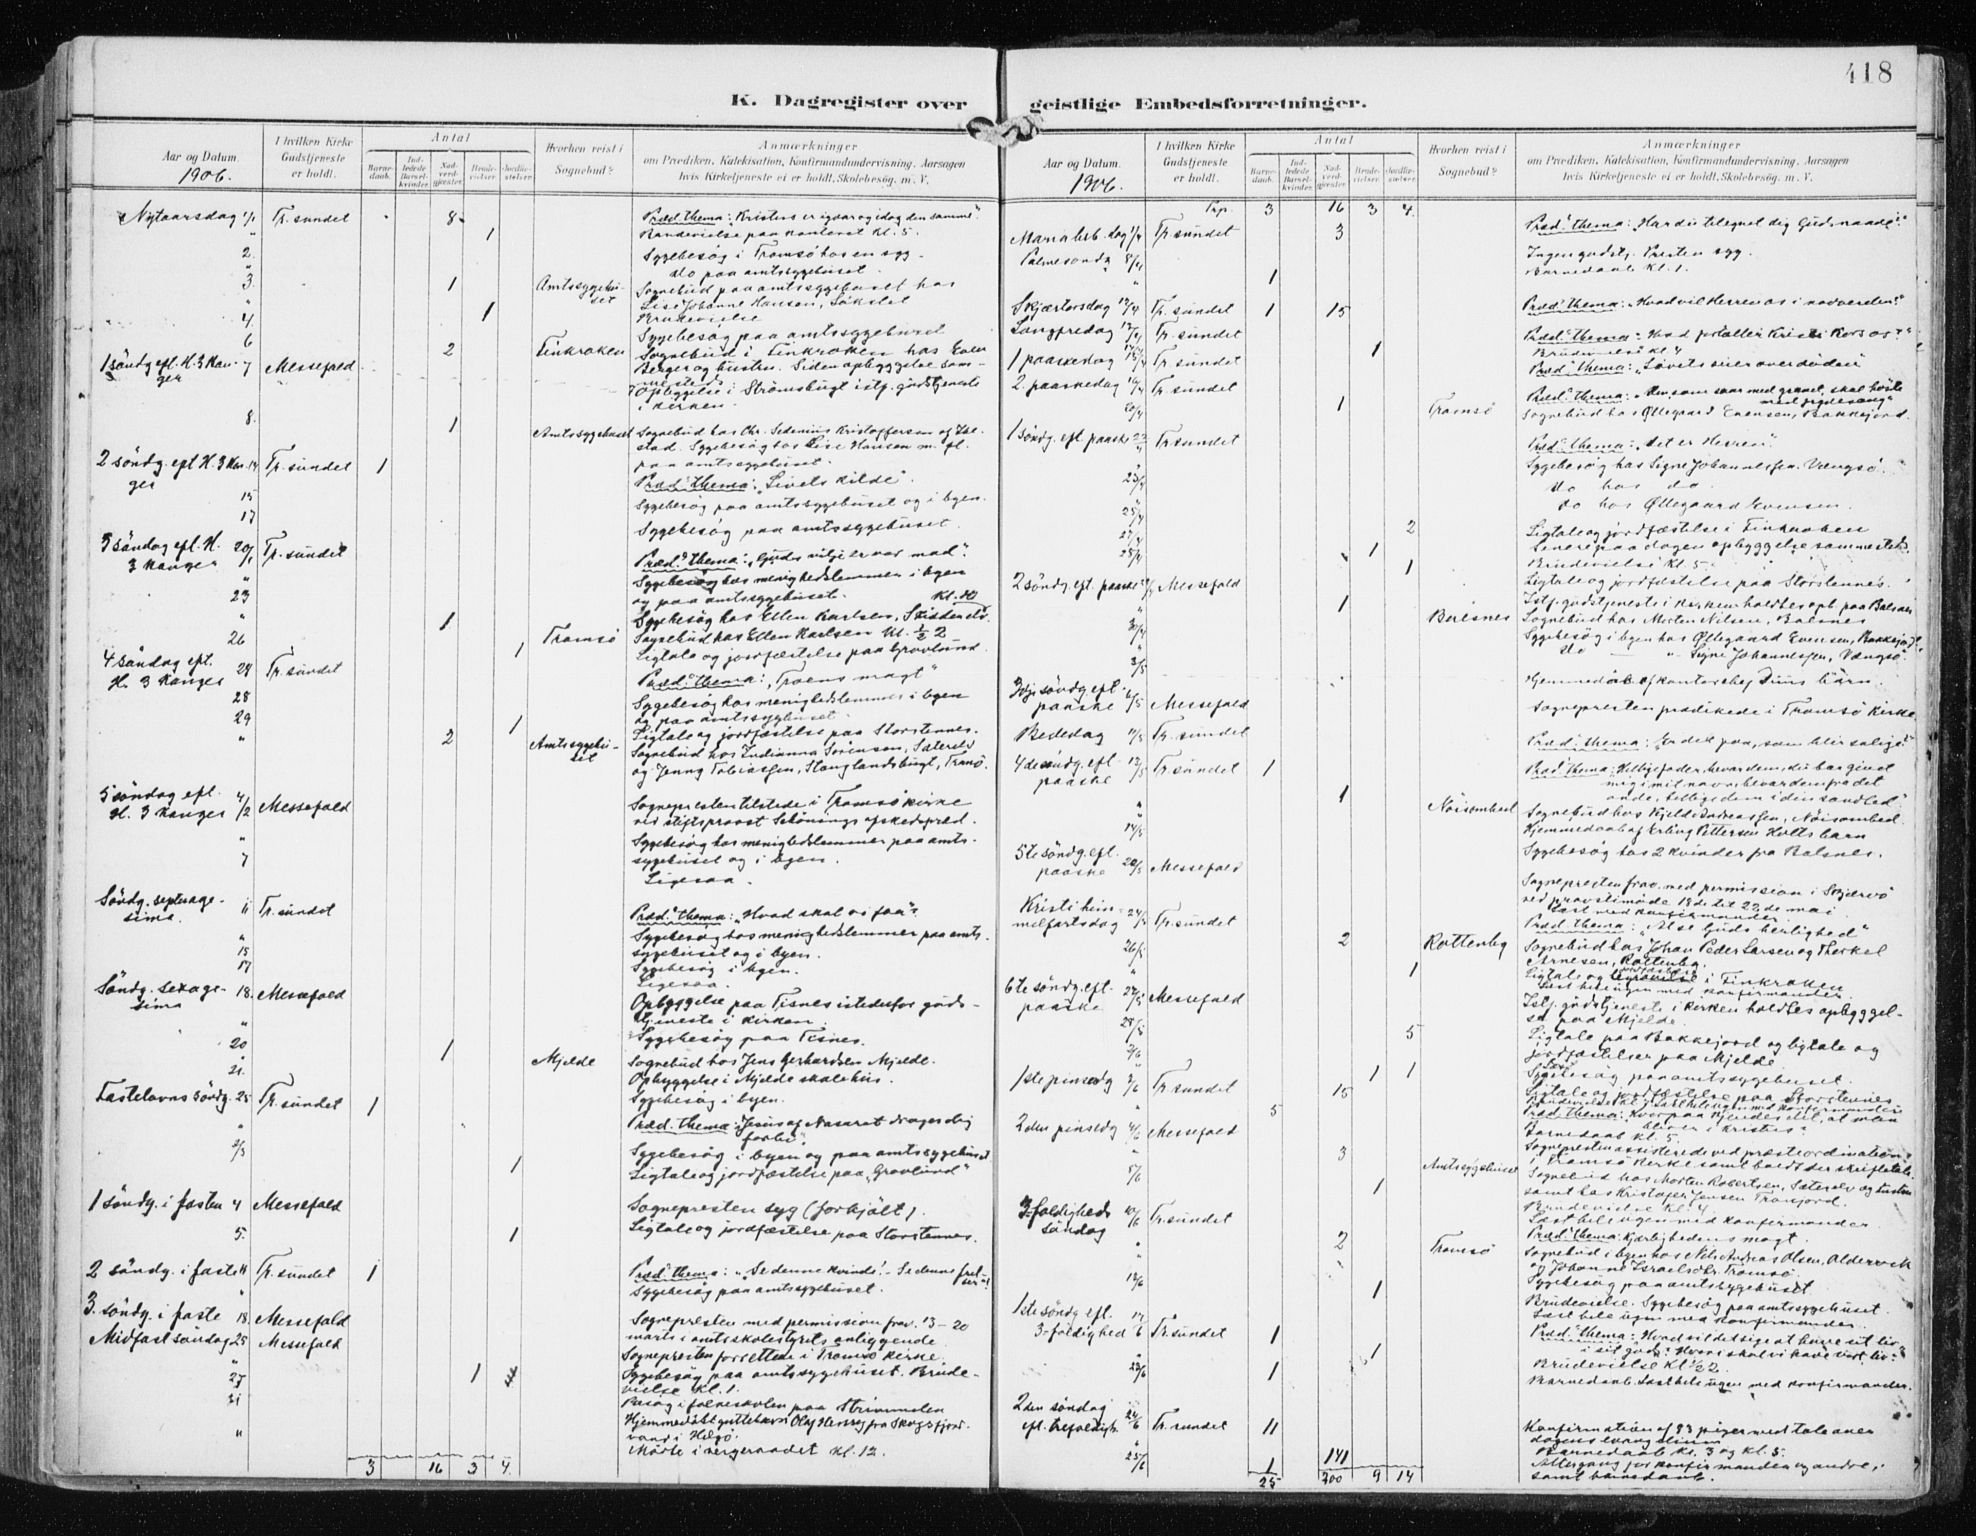 418
K. Dagregister over geistlige Embedsforretninger.
Aar og Datum.
1906.
I hvilken Kirke Gudstjeneste er holdt.
Antal
Barnedaab.
Indledede Barselkvinder.
Nadverdgjester.
Brudevielser.
Jordfæstelser.
Hvorhen reist i Sognebud?
Anmærkninger
om Prædiken, Katekisation, Konfirmandundervisning, Aarsagen
hvis Kirketjeneste ei er holdt, Skolebesøg. m. V.
Nytaarsdag 1/1 Tr. sundet 8 Præd. thema: "Kristus er igaar og idag den samme".
" 1 Brudevielse paa kontoret kl. 5.
2. Sygebesøg i Tromsø hos en syg
do paa amtssygehuset.
3. 1 Amtssygehuset Sognebud paa amtssygehuset hos
Lise Johanne Hansen,
4. 1 Brudevielse
6 Sygebesøg paa amtssygehuset
1 søndg. eft. H. 3 Konger 7 Messefald 2 Finkroken Sognebud i Finkroken hos
Berger og hustru. Siden opbyggelse sammesteds
Opbyggelse i Strømsbugt istf. gudstjeneste
i kirken.
8. 1 Amtssygehuset Sognebud hos Chr. Sedenius Kristoffersen af
Sygebesøg hos Lise Hansen m. fl.
paa amtssygehuset.
2 søndg. eft H. 3 Konger 14 Tr. sundet 1 Præd. thema: "Livets kilde".
15 Sygebesøg paa amtssygehuset og i byen.
17 Sygebesøg paa amtssygehuset.
3 søndag eft. H. 3 Konger Tr. sundet Præd. thema: "Guds vilje er vor mad".
" Sygebesøg hos menighedslemmer i byen
og paa amtssygehuset.
23 Sygebesøg hos Ellen Karlsen,
" 1 Tromsø Sognebud hos Ellen Karlsen kl. 1/2 2
26 1 Ligtale og jordfæstelse paa Gravlund.
4 søndag eft. H. 3 Konger Tr. sundet Præd. thema: "Troens magt"
28 Sygebesøg hos menighedslemmer i byen
og paa amtssygehuset.
29 1 Ligtale og jordfæstelse paa Storstennes.
" 2 Amtssygehuset Sognebud hos Indianna Sørensen,
og Jenny Tobiassen, Stanglandsbugt, Tranø.
5 søndag eft. H. 3 Konger 4/2 Messefald Sognepresten tilstede i Tromsø kirke
ved stiftsprovst afskedspræd.
" Sygebesøg hos menighedslemmer paa amtssygehuset og i byen.
7 Ligesaa.
Søndg. septuagesima. 11 Tr. sundet Præd. thema: "Hvad skal vi faa"?
" Sygebesøg hos menighedslemmer paa amtssygehuset og i byen.
15 Sygebesøg i byen.
17 Ligesaa.
Søndg. sexagesima 18. Messefald Opbyggelse paa Tisnes istedenfor gudstjeneste i kirken.
" Sygebesøg paa Tisnes.
20 1 Mjelde Sognebud hos Jens Gerhardsen Mjelde.
Opbyggelse i Mjelde skolehus.
21. Sygebesøg i byen.
Fastelavns søndg. 25 Tr. sundet 1 Præd. thema: "Jesus af Nasaret drages dig
forbi".
" Sygebesøg i byen og paa amtssygehuset
2/3 1 Ligtale og jordfæstelse paa "Gravlund"
1 søndg. i fasten 4 Messefald Sognepresten syg (forkjølt).
5. 1 Ligtale og jordfæstelse paa Storstennes.
2 søndg. i faste 11 Tr. sundet 1 Præd. thema: "Se denne kvinde! - Se denne frelser"!
" Sygebesøg paa amtssygehuset.
3. søndg. i faste 18. Messefald Sognepresten med permission frav. 13-20
marts i amtsskolestyrets anliggende
Midfastsøndag 25 Messefald Sognepresten forrettede i Tromsø kirke.
" 1 Sygebesøg paa amtssygehuset. Brudevielse kl. 1.
27 Besøg i folkeskolen paa
Hjemmedøbt guttebarn Olaf fra Skogsfjordvand i Helgø.
" Møde i vergeraadet kl. 12.
3 16 3 4.
Aar og Datum.
1906.
I hvilken Kirke Gudstjeneste er holdt.
Antal
Barnedaab.
Indledede Barselkvinder.
Nadverdgjester.
Brudevielser.
Jordfæstelser.
Hvorhen reist i Sognebud?
Anmærkninger
om Prædiken, Katekisation, Konfirmandundervisning, Aarsagen
hvis Kirketjeneste ei er holdt, Skolebesøg. m. V.
Trp. 3 16 3 4.
Maria beb. dag 1/4 Tr. sundet 3 Præd. thema: "Har du tilegnet dig Guds naade"?
Palmesondg 8/4 Ingen gudstj. Presten syg.
" 1 Barnedaab kl. 1.
Skjærtorsdag 12/4 Tr. sundet 1 15 Præd. thema: "Hvad vil Herren os i nadverden?"
Langfredag 13/4 Tr. sundet Præd. thema: "Hvad fortæller Kristi Kors os"?
1 Brudevielse kl. 4
1 paaskedag 15/4 Tr. sundet Præd. thema: "Livets seier over døden"
2. paaskedag 16/4 Tr. sundet Præd. thema: "Den som saar med graad, skal høste
med frydesang"
20/4 1 Tromsø Sognebud hos Øllegaard Evensen, Bakkejord.
1 søndg. eft. paaske 22/4 Tr. sundet Præd. thema: "Det er Herren".
" Sygebesøg hos Signe Johannessen. Vængsø.
23/4 do hos do.
25/4 do hos Øllegaard Evensen.
27/4 2 Ligtale og jordfæstelse i Finkroken
Senere paa dagen opbyggelse sammesteds.
28/4 1 Brudevielse kl. 5.
1 Ligtale og jordfæstelse paa Storstennes.
2 søndg. eft. paaske Messefald Istf. gudstjeneste i kirken holdtes opb. paa Balsnes
" 1 Balsnes Sognebud hos Morten Nilsen, Balsnes
30/4 Sygebesøg i byen hos Øllegaard Evensen, Bakkejord
3/5 do " Signe Johannessen, Vængsø.
Hjemmedaab af kontorchef barn.
3dje søndg eft. paaske 6/5 Messefald Sognepresten prædikede i Tromsø kirke.
Bededag 11/5 Tr. sundet Præd. thema: "Er det faa, som blir salige"?
4de søndg. eft. paaske 13/5 Tr. sundet 1 Præd. thema: "Hellige fader, bevar dem, du har givet
mig i mit navn, bevar dem fra det
onde, hellige dem i din sandhed"
" 1 Nøisomhed Sognebud hos Kjeld Andreassen, Nøisomhed.
14/5 Hjemmedaab af Erling Pettersen Holts barn
Sygebesøg hos 2 kvinder fra Balsnes.
5te søndg. eft. paaske 20/5 Messefald Sognepresten frav. med permission i Skjærvø
ved provstimøde 18de til 22de mai.
Læst med konfirmander.
Kristi himmelfartsdag 24/5 Tr. sundet Præd. thema: "At se Guds herlighed"
26/5 2 Kattenbg Sognebud hos Johan Peder Larsen og Therkel
Arnesen,
" 1 Ligtale og jordfæstelse i Finkroken
Læst hele ugen med konfirmander.
6te søndg. eft. paaske 27/5 Messefald Istf. gudstjeneste i kirken holdtes opbyggelse paa Mjelde
28/5 5 Ligtale paa Bakkejord og ligtale og
jordfæstelser paa Mjelde
2/6 Sygebesøg paa amtssygehuset.
1 1 Ligtale og jordfæstelse paa Storstennes.
1ste pinsedg 3/6 Tr. sundet 15
" 5 Barnedaab kl. 5.
2den pinsedg 4/6 Messefald Sognepresten assisterede ved presteordination
i Tromsø kirke samt holdt der skriftetale
5/6 3 Amtssygehuset Sognebud hos Morten Robertsen,
samt hos Kristofer Jensen Tromfjord.
1 Brudevielse kl. 4.
Læst hele ugen med konfirmander.
3-foldigheds søndag 10/6 Tr. sundet Præd. thema: Kjærlighedens magt.
" 2 Tromsø Sognebud i byen hos Nils Andreas Olsen, Aldersvik
og Johanne Tromsø.
12/6 Sygebesøg paa amtssygehuset
1 Brudevielse. Sygebesøg paa amtssygehuset.
Læst hele ugen med konfirmander.
1ste søndg eft. 3-foldighed 17/6 Tr. sundet 1 Præd. thema: "Hvad vil det sige at have sit liv
i sit gods? Hvori skal vi have vort liv"?
1 Brudevielse kl. 1/2 2.
23/6 1 Barnedaab. Læst hele ugen med konfirmander.
2den søndag eft. trefoldigh. 24/6 Tr. sundet 11 Konfirmation af 83 piger med tale over
dagens evangelium
Barnedaab kl. 3 og kl. 5.
25/6 1 141 Altergang for konfirmander og andre,
samt barnedaab.
25 200 9 14